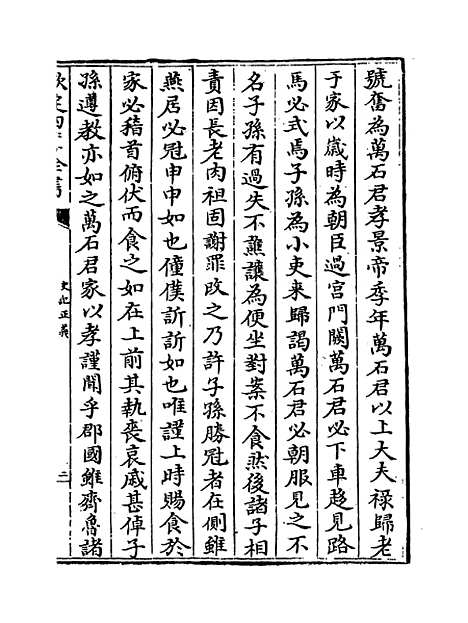 號奮為萬石君孝景帝季年萬石君以上大夫祿歸老
于家以歲時為朝臣過宫門闕萬石君必下車趨見路
馬必式焉子孫為小吏来歸謁萬石君必朝服見之不
名子孫有過失不譙讓為便坐對案不食然後諸子相
責因長老肉袒固謝罪改之乃許子孫勝冠者在側雖
燕居必冠申申如也僮僕訢訢如也唯謹上時賜食於
家必稽首俯伏而食之如在上前其執喪哀戚甚悼子
孫遵教亦如之萬石君家以孝謹聞乎郡國雖齊魯諸
欽定四庫全書
史記正義
三